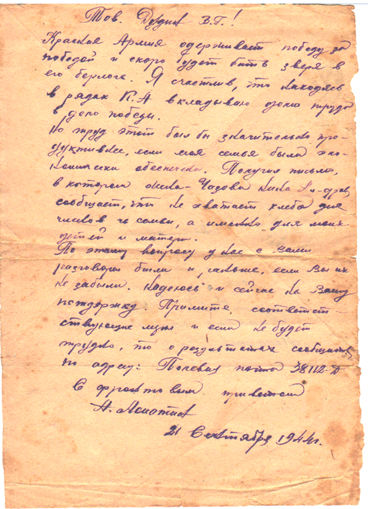 Тов. В.Г.!
Красная Армия одерживает победу за
победой и скоро будет бить зверя в
его берлоге. Я счастлив, что находясь
в рядах К.А вкладываю долю труда
в дело победы.
Но труд этот был бы значительно про-
дуктивнее, если моя семья была эко-
номически обеспечена. Получил письмо,
в котором
сообщает, что не хватает хлеба для
членов семьи, а именно для моих
детей и матери.
По этому вопросу у нас с Вами
разговоры были и, если Вы их
не забыли. Надеюсь и сейчас на Вашу
поддержку. Примите, соответст-
вующие меры и если не будет
трудно, то о результатах сообщите
по адресу: Полевая почта 38112-
С фронтовым приветом
А.
21 Сентября 1944г.